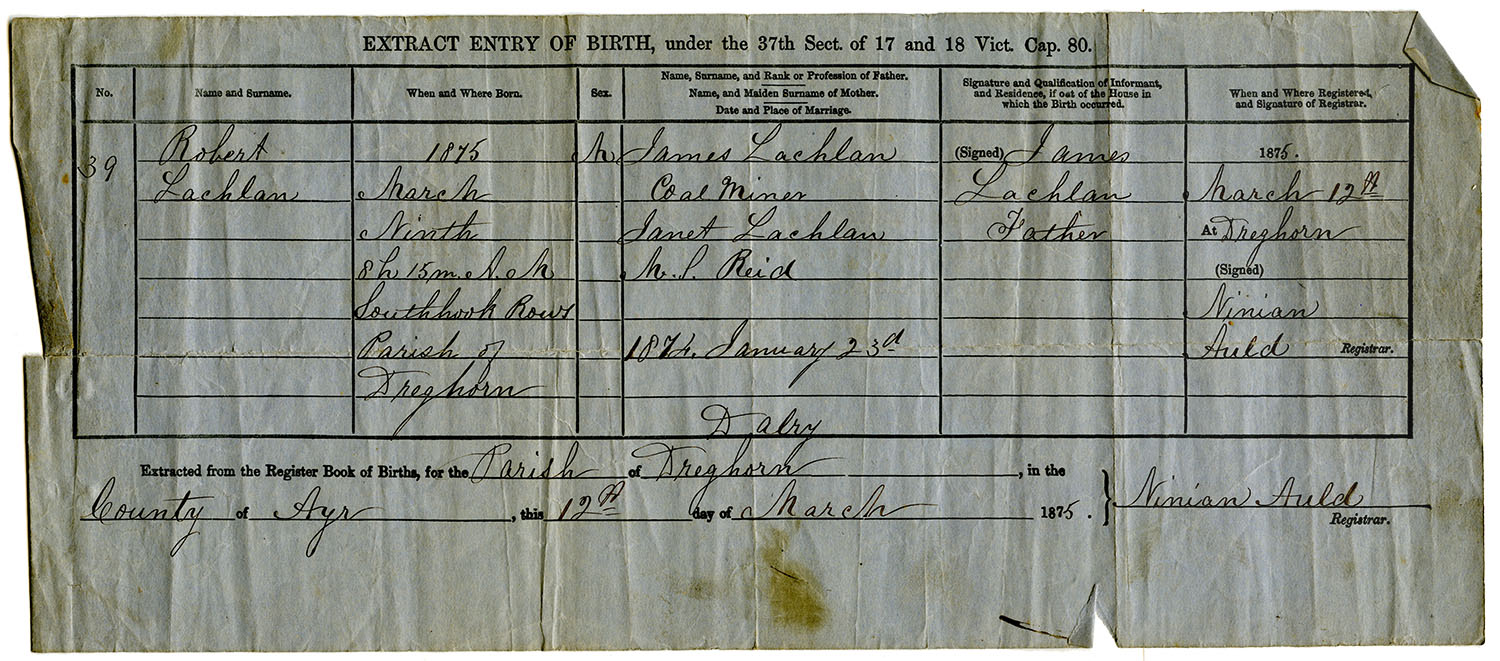 EXTRACT ENTRY OF BIRTH, under the 37th Sect. of 17 and 18 Vict. Cap. 80.
No.
Name and Surname.
When and Where Born.
Sex.
Name, Surname, and Rank or Profession of Father.
Name, and Maiden Surname of Mother.
Date and Place of Marriage.
Signature and Qualification of Informant,
and Residence, if out of the House in
which the Birth occurred.
When and Where Registered,
and Signature of Registrar.
39
Robert
Lachlan
1875
March
Ninth
8 h 15 m. A. M
Southhook Rows
Parish of
Dreghorn
M
James Lachlan
Coal Miner
Janet Lachlan
M. S. Reid
1874. January 23rd
Dalry
(Signed) James
Lachlan
Father
1875.
March 12th
At Dreghorn
(Signed)
Ninian
Auld Registrar.
Extracted from the Register Book of Births, for the Parish of Dreghorn, in the
County of Ayr, this 12th day of March 1875. } Ninian Auld
Registrar.